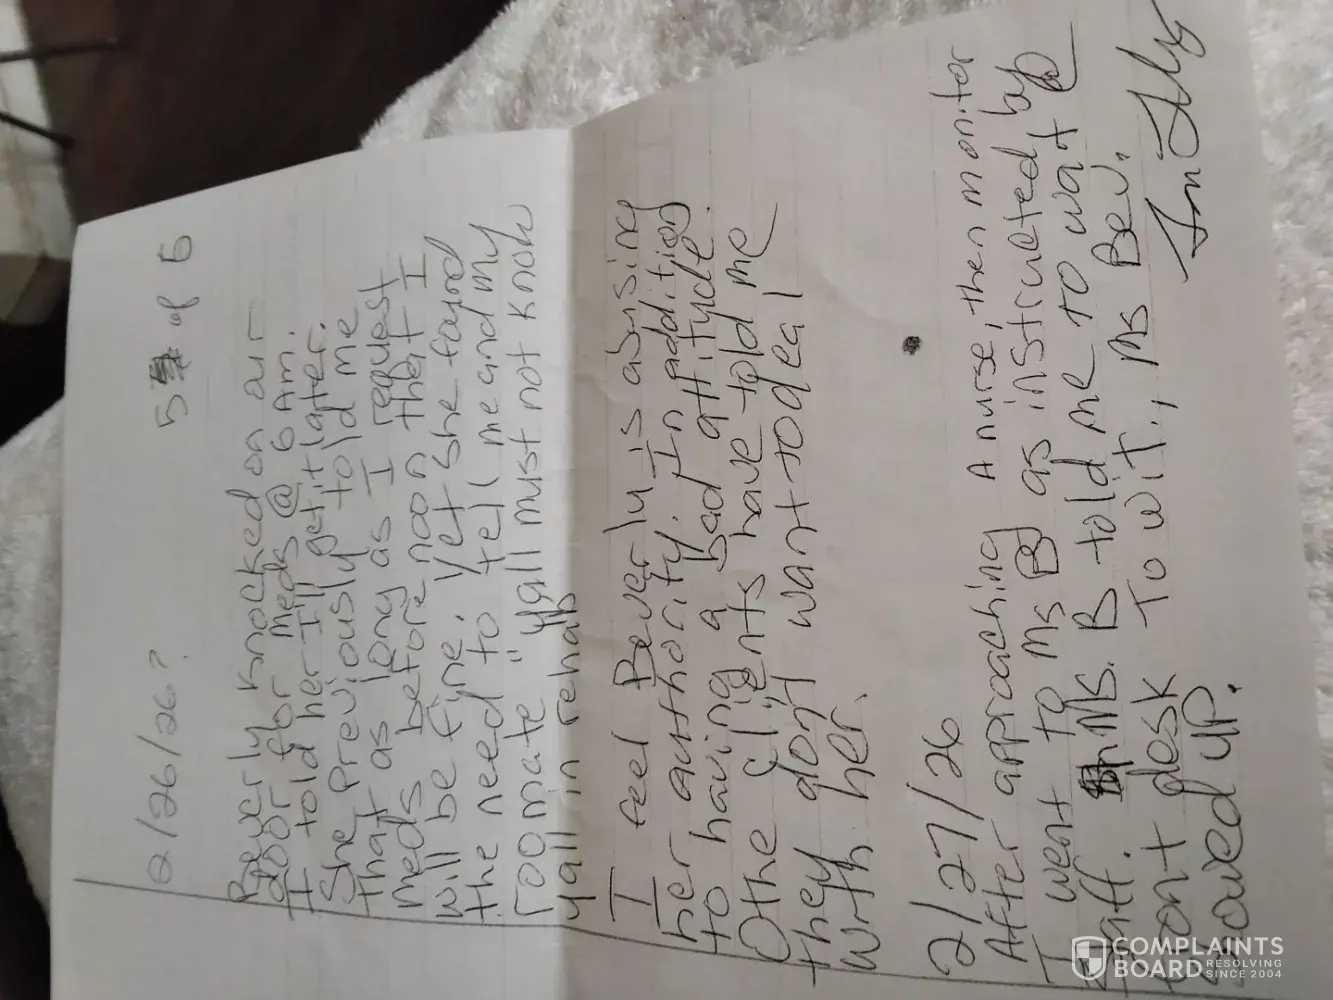 2/26/26?
5 of 5
Beverly knocked on our
door for meds @ 6 Am.
I told her I'll get it later.
She previously told me
that as long as I request
meds before noon that I
will be fine. Yet she found
the need to tell me and my
roomate "yall must not know
yall in rehab
I feel Beverly is abusing
her authority. In addition
to having a bad attitude.
Othe clients have told me
they don't want to deal
with her.
2/27/26
After approaching a nurse, then monitor
I went to Ms B as instructed by
Staff. Ms. B told me to wait @
front desk To wit, Ms Bev.
showed up.
COMPLAINTS
BOARD
RESOLVING
SINCE 2004